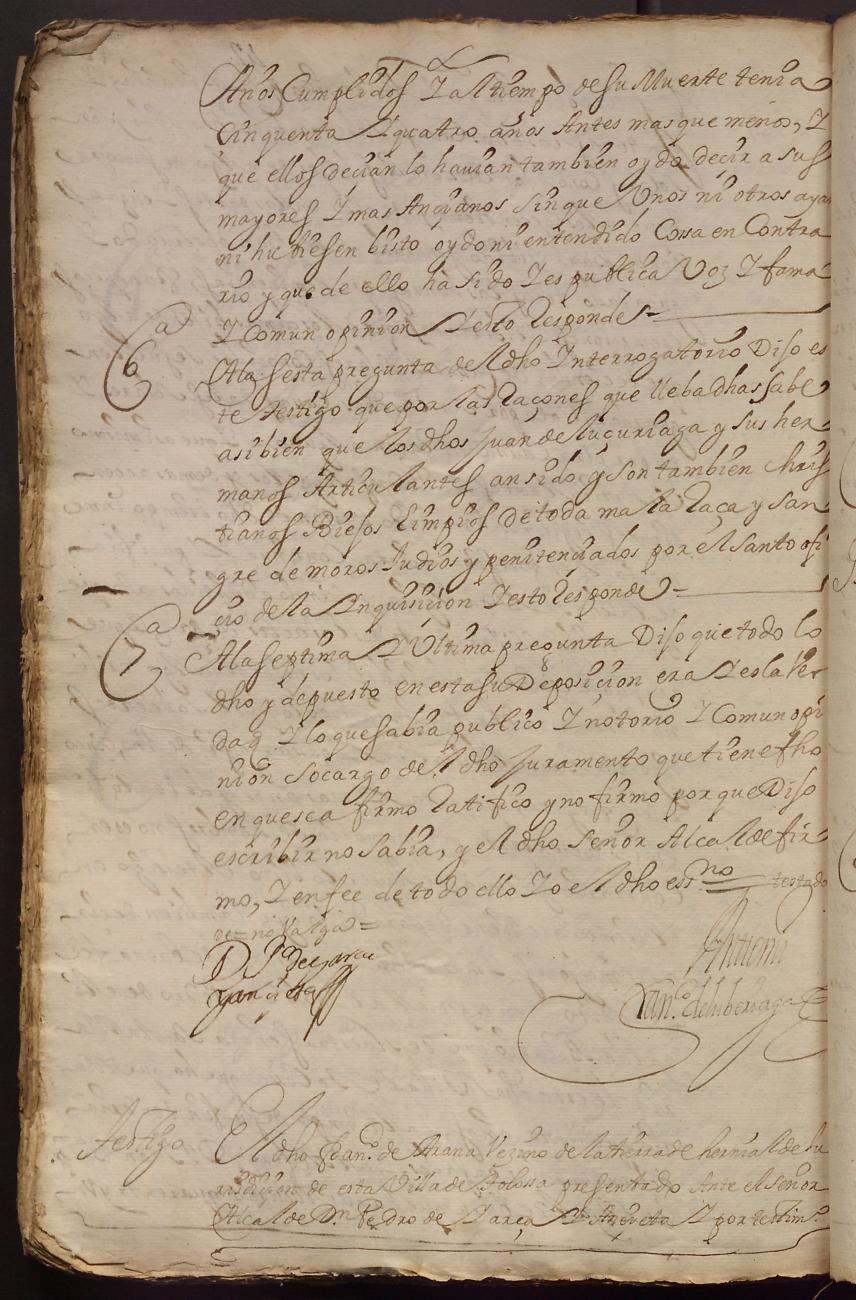 Años Cumplidos Y al tiempo de su Muerte tenia
Cinquenta Y quatro años Antes mas que menos, Y
que ellos decian lo havian tambien oydo decir a sus
mayores Y mas Ancianos sin que Unos ni otros ayan
ni hubiesen bisto oydo ni entendido Cossa en Contra
rio y que de ello ha sido Y es publica Voz Y fama
Y Comun opinion Y esto Responde
6a
Ala sesta pregunta del dho Interrogatorio Dijo es
te testigo que por las Raçones que lleba dhas sabe
asi bien que los dhos Juan de Luçuriaga y sus her
manos Articulantes an sido y son tambien Chris
tianos Biejos Limpios de toda mala Raça y san
gre de moros Judios y penitenciados por el santo ofi
cio de la Inquisicion Y esto Responde
7a
Ala septima Y Ultima pregunta Dijo que todo lo
dho y depuesto en esta su Deposicion era Y es la Ver
dad Y lo que sabia publico Y notorio Y Comun opi
nion so cargo del dho Juramento que tiene fho
en que se afirmo Ratifico y no firmo por que Dijo
escribir no sabia, y el dho señor Alcalde fir
mo, Y en fee de todo ello Yo el dho essno testado
no Valga
Antemi
testigo
El dho Franco de Arana Vezino de la tierra de hernialde Ju
risdicion de esta Villa de Tolossa presentado Ante el señor
Alcalde Dn Pedro de Yarça Y Y por testimo